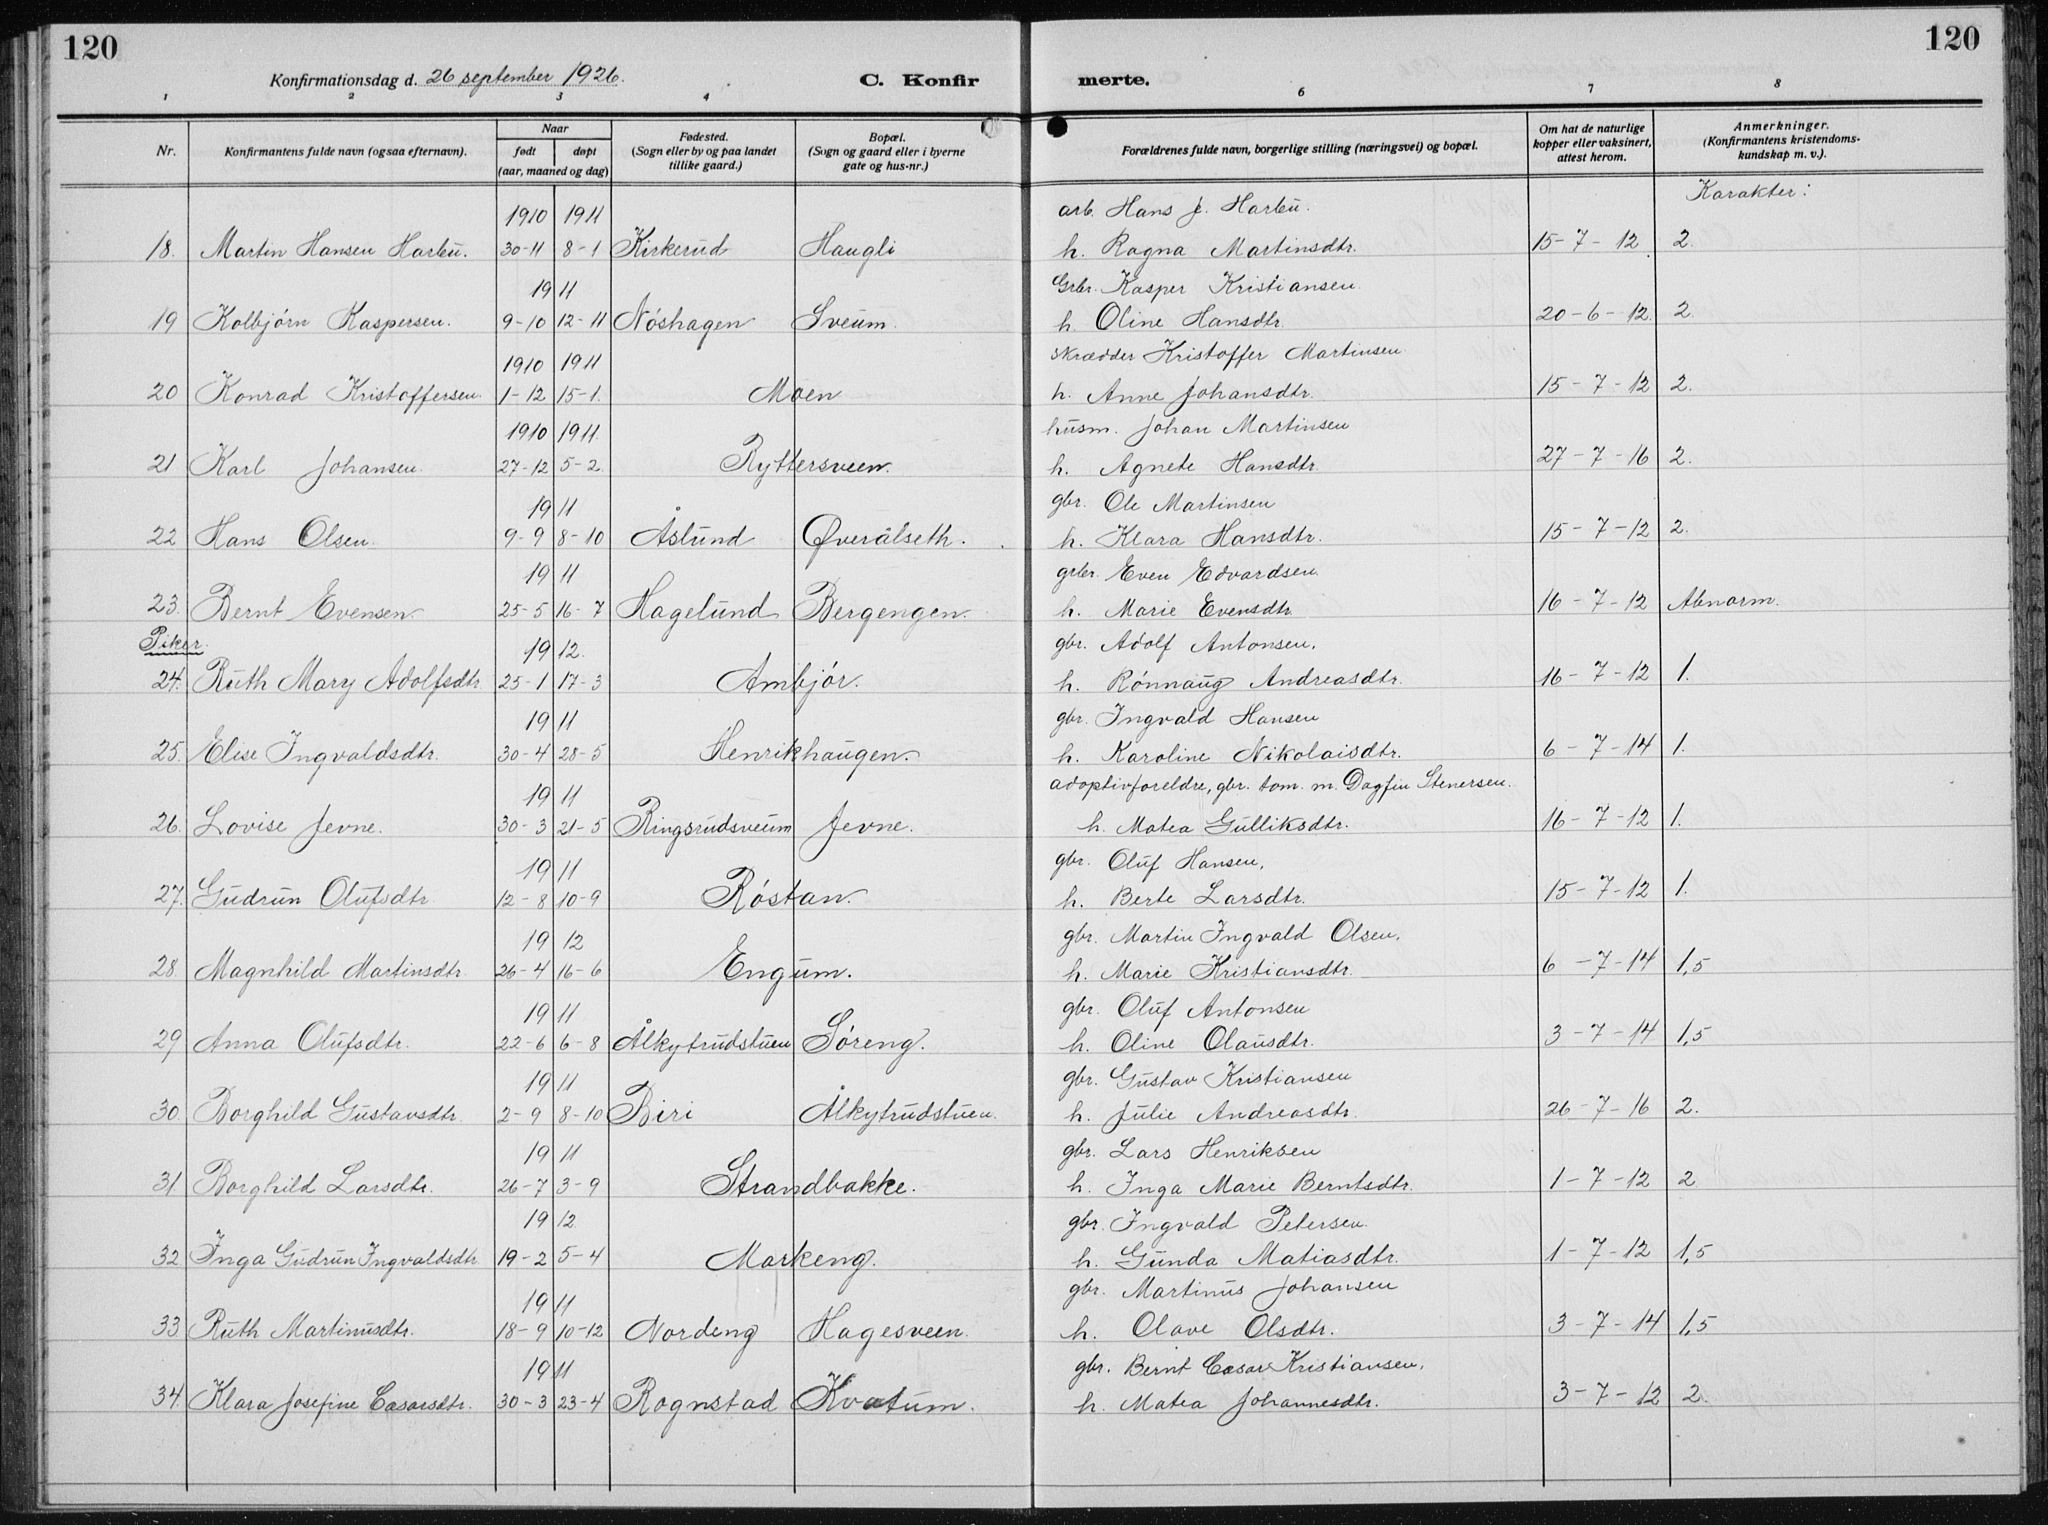 120
120
Konfirmationsdag d. 26 september 1926.
C. Konfir
merte.
1 2 3 4 6 7 8
Nr.
Konfirmantens fulde navn (ogsaa efternavn).
Naar
født døpt
(aar, maaned og dag)
Fødested.
(Sogn eller by og paa landet
tillike gaard.)
Bopæl.
(Sogn og gaard eller i byerne
gate og hus-nr.)
Forældrenes fulde navn, borgerlige stilling (næringsvei) og bopæl.
Om hat de naturlige
kopper eller vaksinert,
attest herom.
Anmerkninger.
(Konfirmantens kristendoms-
kundskap m. v.).
Karakter:
1910 1911 arb. Hans J. Harbu.
18. Martin Hansen Harbu. 30-11 8-1 Kirkerud Haugli h. Ragna Martinsdtr. 15-7-12 2.
1911 Grbr. Kasper Kristiansen
19 Kolbjørn Kaspersen. 9-10 12-11 Nöshagen Sveum. h. Oline Hansdtr. 20-6-12 2.
1910 1911 skrædder Kristoffer Martinsen
20 Konrad Kristoffersen. 1-12 15-1. Moen h. Anne Johansdtr. 15-7-12 2.
1910 1911. husm. Johan Martinsen
21 Karl Johansen. 27-12 5-2. Ryttersveen. h. Agnete Hansdtr. 27-7-16 2.
1911 gbr. Ole Martinsen
22 Hans Olsen. 9-9 8-10 Åslund Øverålseth. h. Klara Hansdtr. 15-7-12 2.
1911 grbr. Even Edvardsen.
23. Bernt Evensen. 25-5 16-7 Hagelund Bergengen. h. Marie Evensdtr 16-7-12 Abnorm.
Piker. 1912. gbr. Adolf Antonsen.
24. Ruth Mary Adolfsdtr 25-1 17-3 Ambjör. h. Rönnaug Andreasdtr. 16-7-12 1.
1911 gbr. Ingvald Hansen
25. Elise Ingvaldsdtr. 30-4 28-5 Henrikhaugen. h. Karoline Nikolaisdtr. 6-7-14 1.
1911 adoptivforeldre, gbr. tom. m. Dagfin Stenersen.
26. Lovise Jevne. 30-3 21-5 Ringsrudsveum Jevne. h. Matea Gulliksdtr. 16-7-12 1.
1911 gbr. Oluf Hansen,
27. Gudrun Olufsdtr. 12-8 10-9 Röstan. h. Berte Larsdtr. 15-7-12 1.
1912 gbr. Martin Ingvald Olsen,
28. Magnhild Martinsdtr 26-4 16-6 Engum. h. Marie Kristiansdtr. 6-7-14 1,5
1911 gbr. Oluf Antonsen
29 Anna Olufsdtr. 22-6 6-8 Ålkytrudstuen Söreng. h. Oline Olausdtr. 3-7-14 1,5
1911 gbr. Gustav Kristiansen
30. Borghild Gustavsdtr. 2-9 8-10 Biri Ålkytrudstuen. h. Julie Andreasdtr. 26-7-16 2.
1911 gbr. Lars Henriksen
31. Borghild Larsdtr. 26-7 3-9 Strandbakke. h. Inga Marie Berntsdtr. 1-7-12 2
1912. gbr. Ingvald Petersen.
32 Inga Gudrun Ingvaldsdtr 19-2 5-4 Markeng. h. Gunda Matiasdtr. 1-7-12 1,5
1911 gbr. Martinus Johansen
33 Ruth Martinusdtr. 18-9 10-12 Nordeng Hagesveen. h. Olave Olsdtr. 3-7-14 1,5
1911 gbr. Bernt Cæsar Kristiansen.
34. Klara Josefine Cæsarsdtr. 30-3 23-4 Rognstad Kvatum. h. Matea Johannesdtr. 3-7-12 2.